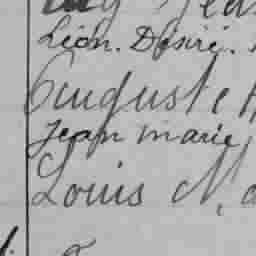 Léon. Désiré.
Auguste
Jean marie
Louis